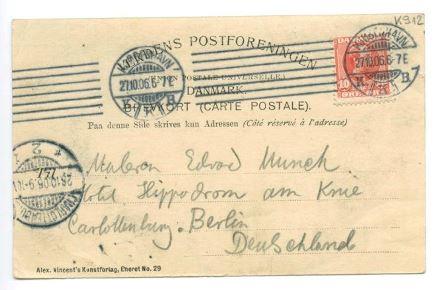 K912
VERDENS POSTFORENINGEN
(UNION POSTALE UNIVERSELLE)
DANMARK.
BREVKORT (CARTE POSTALE).
Paa denne Side skrives kun Adressen (Côté réservé à l'adresse)
KJØBENHAVN
27.10.06.6-7E
K
B
KJØBENHAVN
27.10.06.6-7E
K
B
DANMARK
10
ØRE
37
28.10.06.9-10
Maleren Edvard Munch
Hotel Hippodrom am Knie
Carlottenburg. Berlin
Deutschland
Alex. Vincent's Kunstforlag, Eneret No. 29